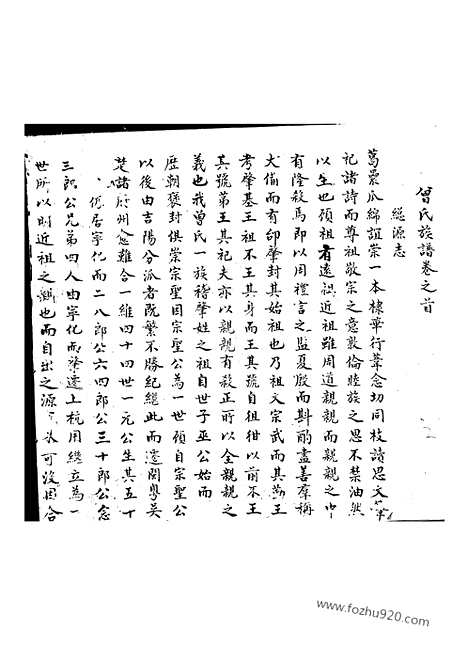 曾氏族譜卷之首
總源志
葛藟瓜綿誼崇一本棣華行葦念切同枝讀思文
祀諸詩而尊祖敬宗之意敦倫睦族之思不禁油然
以生也顧祖有遠親近祖雖周道親親而親親之中
有隆殺焉即以周禮言之監夏殷而斟酌盡善羣稱
大備而有邰肇封其始祖也乃祖文宗武而其
考肇基王祖不王其身而王其號自祖紺以前不王
其號第王其祀夫亦以親親有殺正所以全親親之
義也我曾氏一族稽肇姓之祖自世子巫公始而
歷朝褒封俱崇宗聖因宗聖公為一世顧自宗聖公
以後由吉陽分派者既繁不勝紀繼此而遷閩粵吳
楚諸府州愈難合一維四十四世一元公生其五十
徙居寧化而二八郎公六四郎公三十郎公念
三郎公兄弟四人由寧化而肇遷上杭用繼立為一
世所以明近祖之也而自出之源可沒因合
www.fozhu920.com